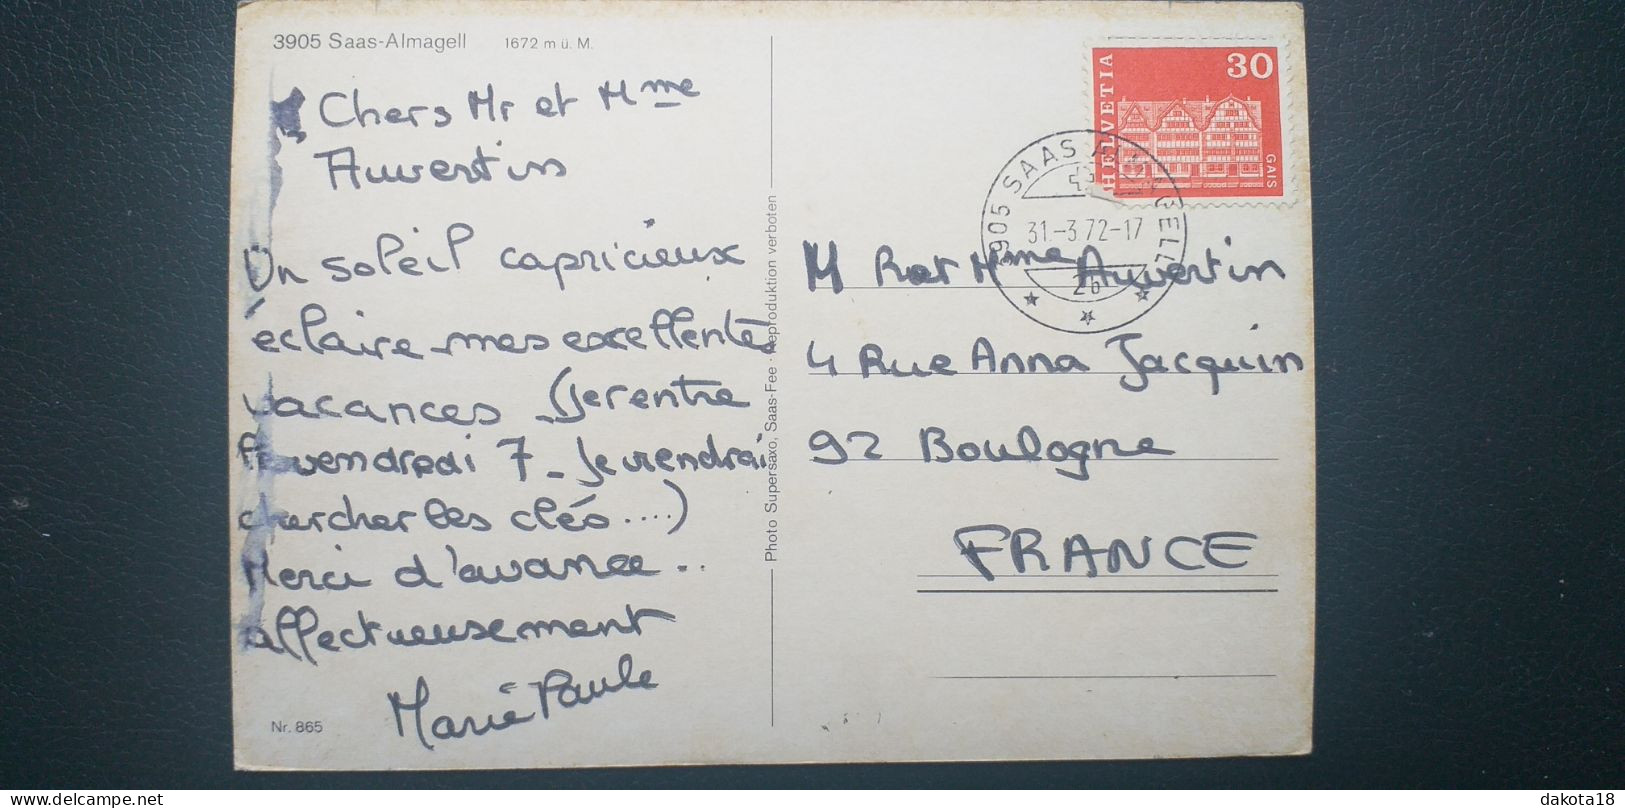 3905 Saas-Almagell 1672 m ü. M.
Chers Mr et Mme
Auvertin
Un soleil capricieux
éclaire mes excellentes
vacances (je rentre
vendredi 7 - je viendrai
chercher les clés ....)
Merci d'avance ..
affectueusement
Marie Paule
Nr. 865
Photo Supersaxo, Saas-Fee · Reproduktion verboten
HELVETIA
30
GAIS
3905 SAAS ALMAGELL
31.-3.72-17
2b
M et Mme Auvertin
4 Rue Anna Jacquin
92 Boulogne
FRANCE
dakota18